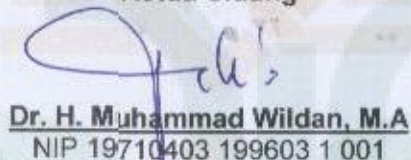 Dr. H. Muhammad Wildan, M.A
NIP 19710403 199603 1 001